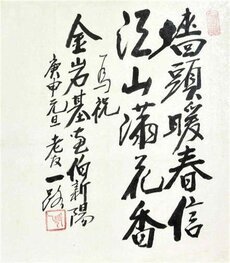 墻頭暖春信
江山滿花香
為祝
金岩基画伯新陽
庚申元旦 老友 一路